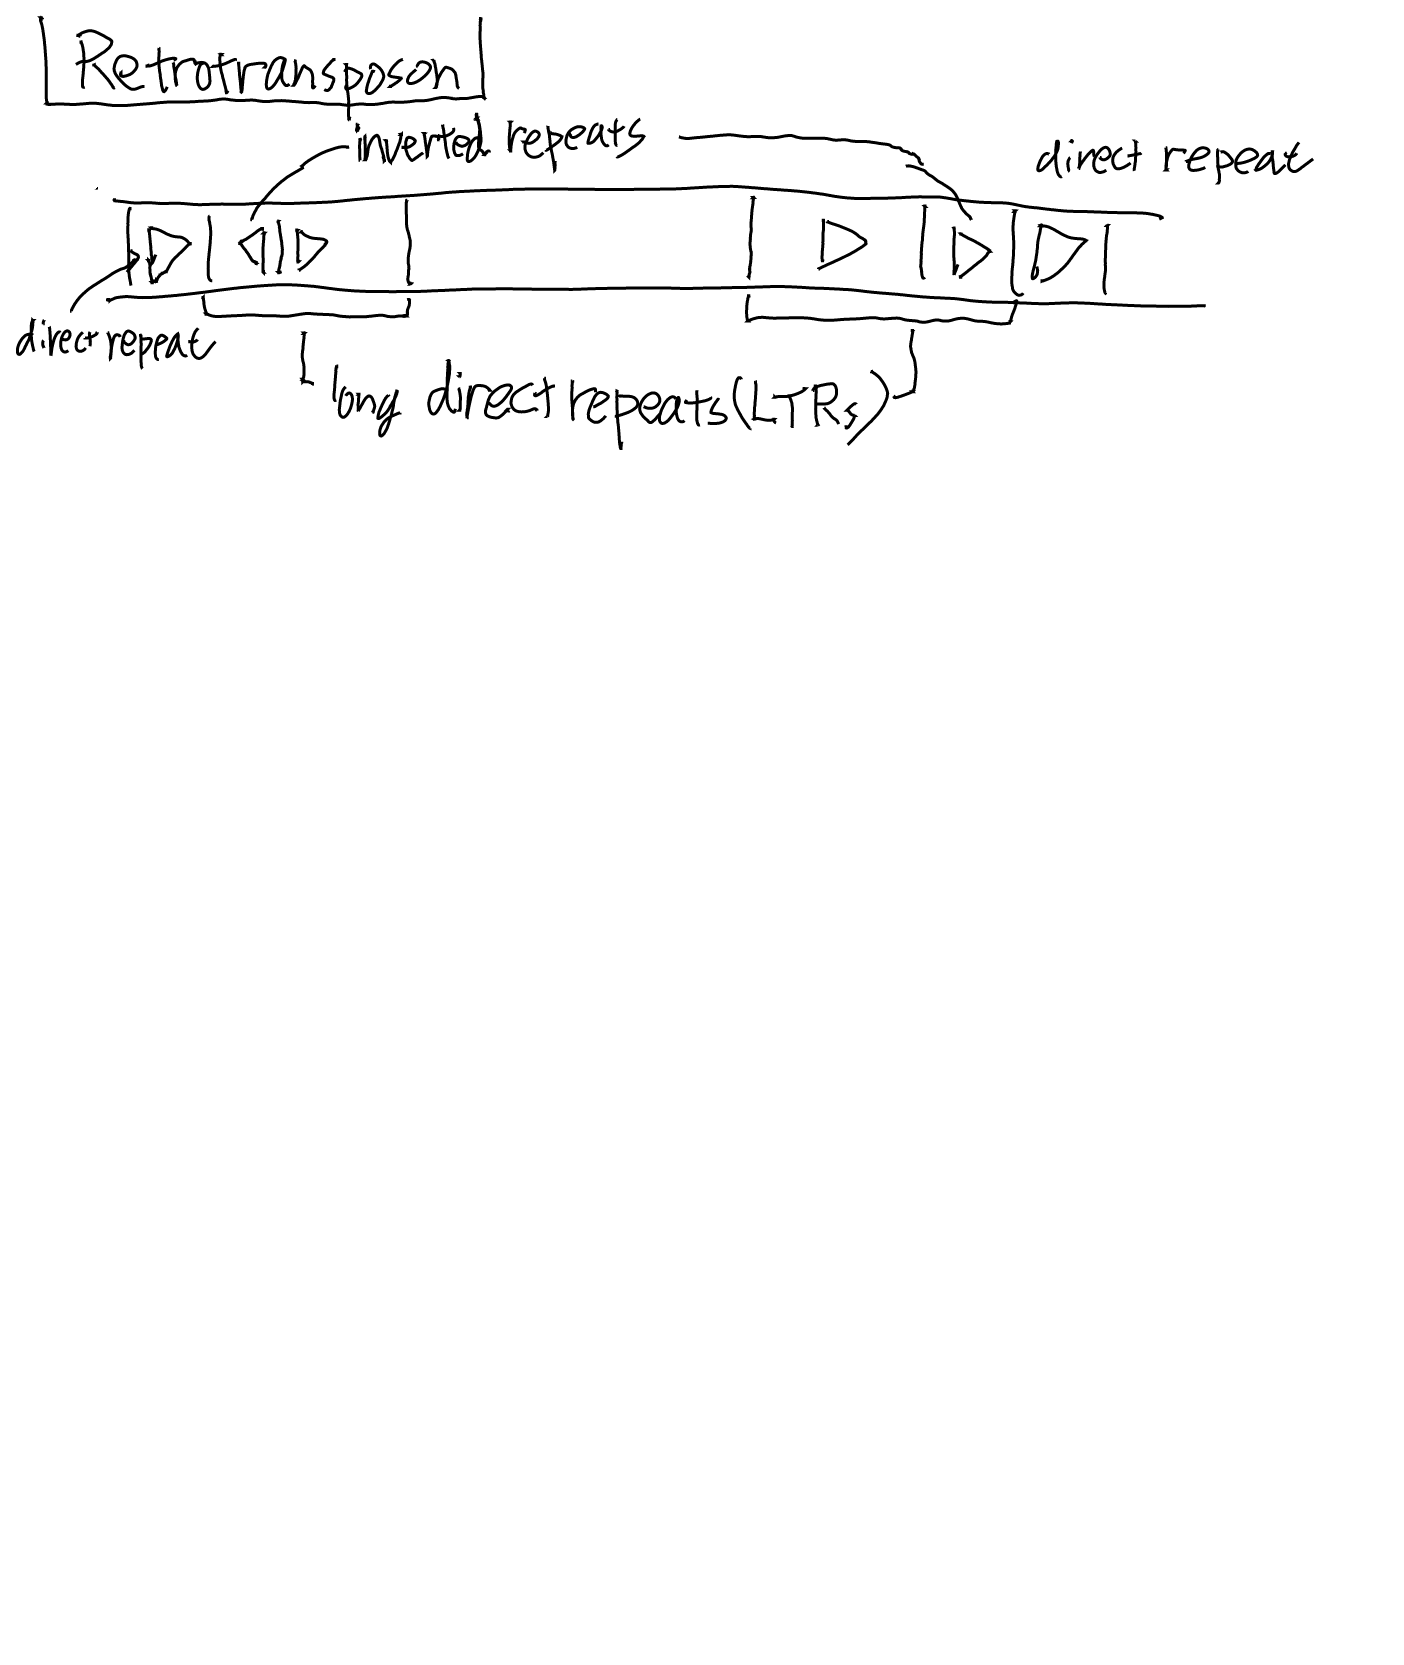 Retrotransposon
inverted repeats
direct repeat
direct repeat
long direct repeats (LTRs)